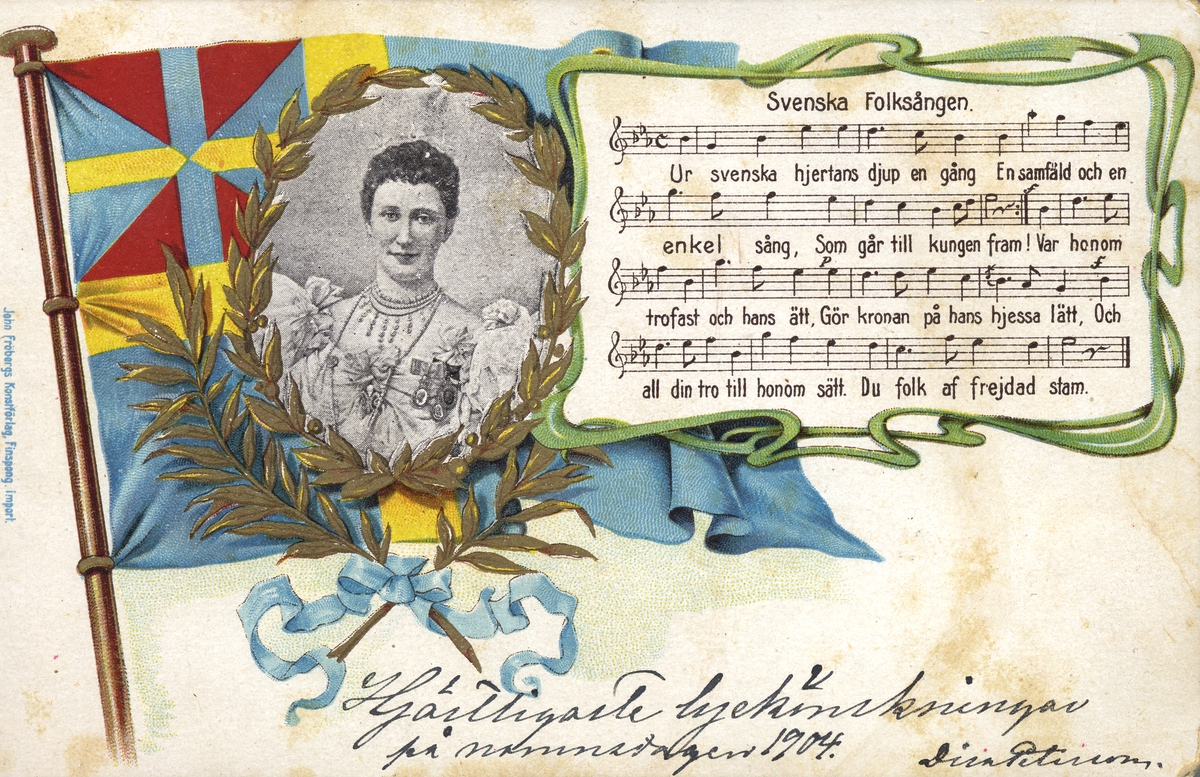 Svenska Folksången.
Ur svenska hjertans djup en gång En samfäld och en
enkel sång, Som går till kungen fram! Var honom
trofast och hans ätt, Gör kronan på hans hjessa lätt, Och
all din tro till honom sätt. Du folk af frejdad stam.
John Fröbergs Konstförlag, Finspong. import.
Hjärtligaste lyckönskningar
på namnsdagen 1904.
Peterson.